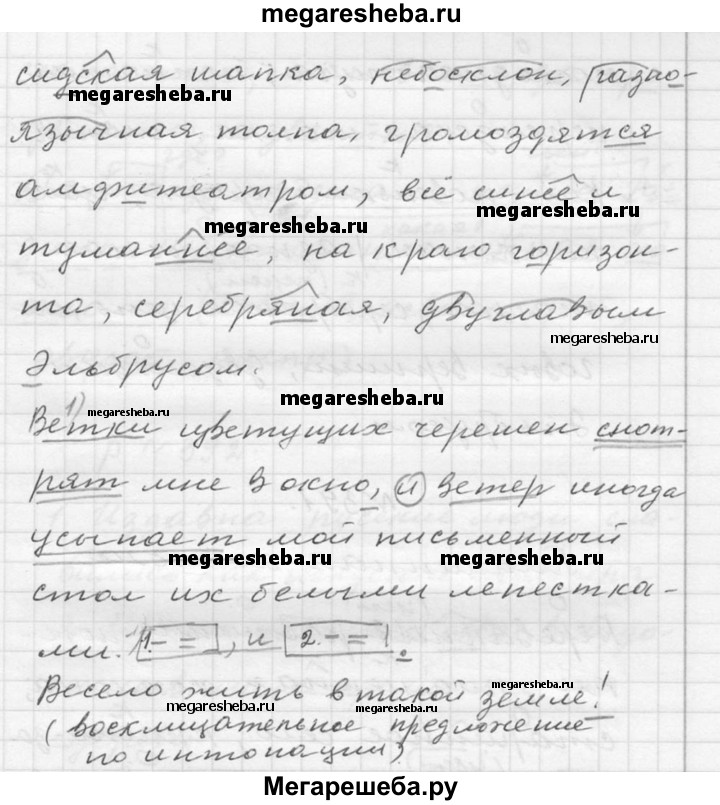 megaresheba.ru
сидская шапка, небосклон, разно-
megaresheba.ru
megaresheba.ru
язычная толпа, громоздятся
megaresheba.ru
амфитеатром, всё синее и
megaresheba.ru
megaresheba.ru
туманнее, на краю горизон-
та, серебряная, двуглавым
megaresheba.ru
Эльбрусом.
megaresheba.ru
1)
megaresheba.ru
Ветки цветущих черешен смот-
рят мне в окно, и ветер иногда
усыпает мой письменный
megaresheba.ru
megaresheba.ru
стол их белыми лепестка-
ми. 1) 1. - = , и 2. - = .
megaresheba.ru
megaresheba.ru
Весело жить в такой земле!
megaresheba.ru
megaresheba.ru
(восклицательное предложение
по интонации)
megaresheba.ru
Мегарешеба.ру